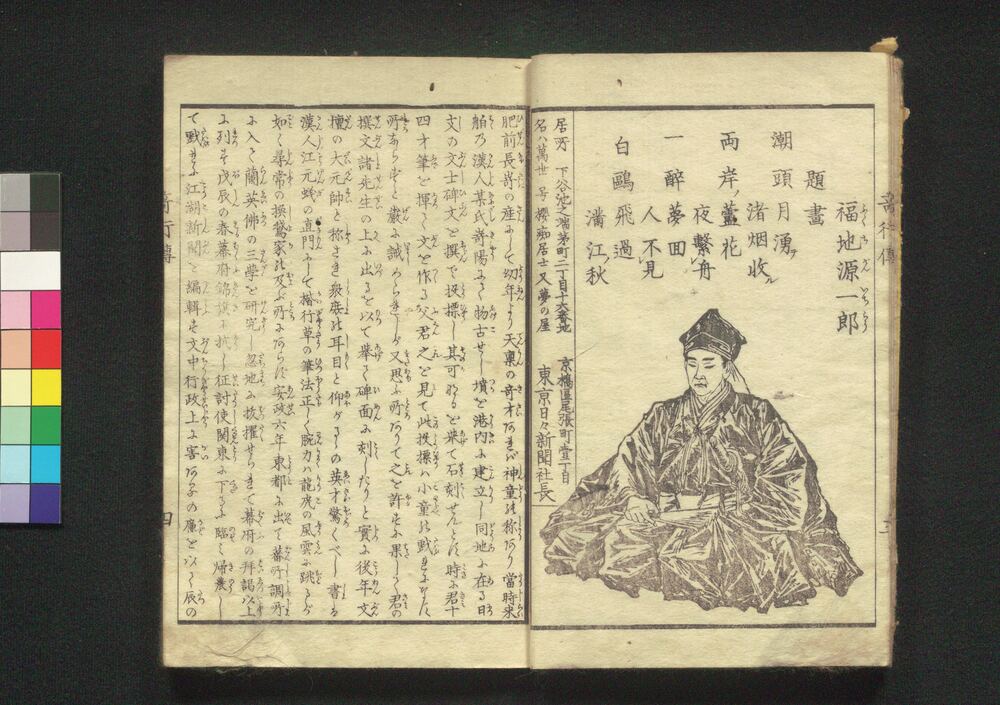 福地源一郎
題畫
潮頭月湧テ
渚烟收ル
両岸ノ蘆花
夜繋舟
一酔夢回
人不見
白鷗飛過
滿江ノ秋
居所 下谷池之端茅町二丁目十六番地
名ハ萬世 号櫻痴居士 又夢の屋
京橋區尾張町壹丁目
東京日々新聞社長
肥前長崎の産にして幼年より天稟の奇才あれば神童の称あり當時来
舶の漢人某氏崎陽にて物古せし墳を港内に建立し同地に在る日
支の文士碑文を撰で投標し其可なるを采て石刻せんとす時に君十
四才筆を揮て文を作る父君之を見て此投標ハ小童の戯れにすべき
所ならずと嚴に誡められしが又思ふ所ありて之を許せしに果して君の
撰文諸先生の上に出るを以て挙て碑面に刻したりと實に後年文
壇の大元帥と称さき
漢人江元曦の直門にして楷行草の筆法正しく腕力ハ龍虎の風雲に跳るが
如く尋常の操觚家の及ぶ所にあらず安政六年東都に出て蕃所調所
に入て蘭英佛の三學を研究し忽地に抜擢せられて幕府の拜謁以上
に列す戊辰の春幕府錦旗に抗し征討使関東に下るに臨て帰農し
て戯れに江湖新聞を編輯す文中行政上に害あるの廉を以て辰の
四